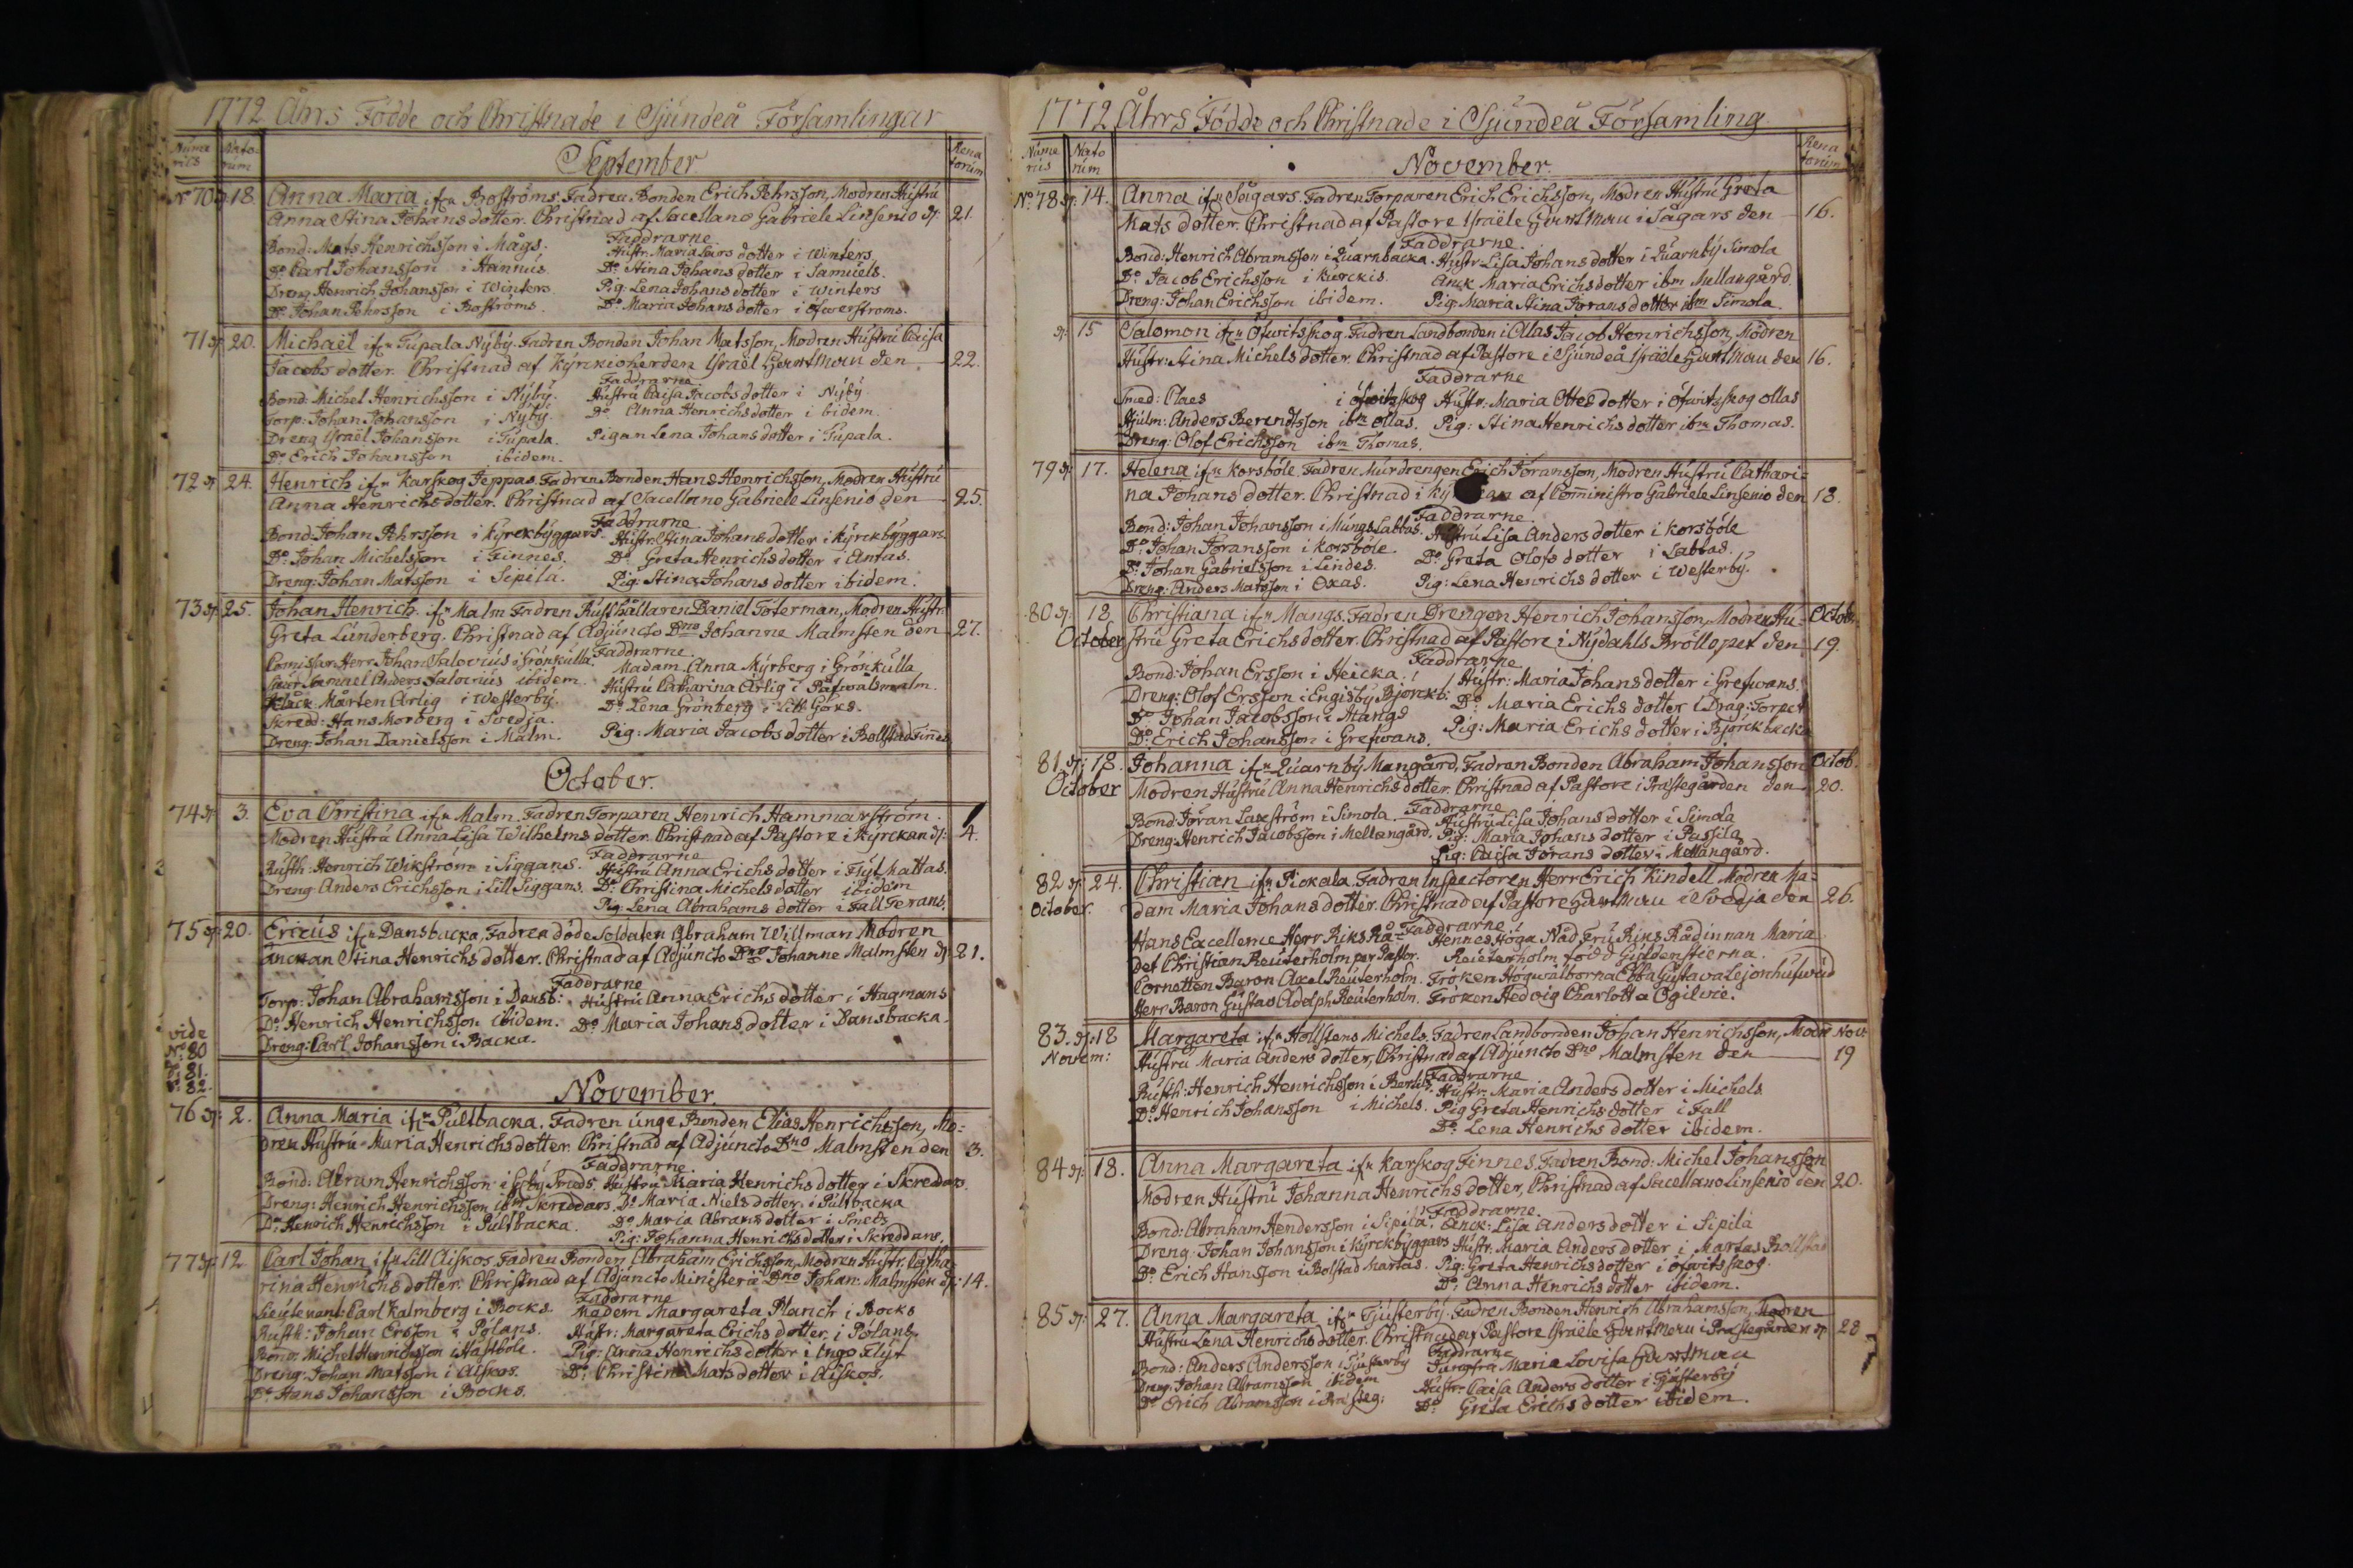 1772 Åhrs Födde och Christnade i Sjundeå Församlingar
Nume rus Nato rum September Rena torum
No 70 d. 18. Anna Maria ifrn Boströms. Fadren Bonden Erich Pehrsson, Modren Hustru
Anna Stina Johans dotter. Christnad af Sacellano Gabriele Linsenio d. 21.
Faddrarne
Bond: Mats Henrichsson i Mågs. Hustr. Maria Lars dotter i Winters
Do Carl Johansson i Hannus. Do Stina Johans dotter i Samuels.
Dreng Henrich Johansson i Winters. Pig. Lena Johans dotter i Winters
Do Johan Pehrsson i Boströms. Do Maria Johans dotter i Öfwerstroms.
71 d. 20. Michaël ifrn Tupala Nyby. Fadren Bonden Johan Matsson, Modren Hustru Caisa
Jacobs dotter. Christnad af Kyrckioherden Israël den 22.
Faddrarne
Bond: Michel Henrichsson i Nyby. Hustru Caisa Jacobs dotter i Nyby
Torp: Johan Johansson i Nyby. Do Anna Henrichs dotter ibidem.
Dreng Israël Johansson i Tupala. Pigan Lena Johans dotter i Tupala.
Do Erich Johansson ibidem.
72 d. 24. Henrich ifrn Karskog Jeppas. Fadren Bonden Hans Henrichsson, Modren Hustru
Anna Henrichs dotter. Christnad af Sacellano Gabriele Linsenio den 25.
Faddrarne
Bond: Johan Pehrsson i Kyrckbyggars. Hustr. Stina Johans dotter i Kyrckbyggars.
Do Johan Michelsson i Finnes. Do Greta Henrichs dotter i Antas.
Dreng: Johan Matsson i Sipilä. Pig: Stina Johans dotter ibidem.
73 d. 25. Johan Henrich ifrn Malm. Fadren Rusthållaren Daniel Töterman, Modren Hustr.
Greta Lunderberg. Christnad af Adjuncto Dno Johanne Malmsten den 27.
Faddrarne
Comissar. Herr Johan Salovius i Grönkulla. Madam Anna Myrberg i Grönkulla
Samuel Anders Salovius ibidem. Hustru Catharina Ärlig i Påfwalsmalm.
Mårten Ärlig i Westerby. Do Lena Grönberg i Lill Göks.
Skredd: Hans Morberg i Svedja.
Dreng: Johan Danielsson i Malm. Pig: Maria Jacobs dotter i Bollstad Finnes
October.
74 d. 3. Eva Christina ifrn Malm. Fadren Torparen Henrich Hammarström.
Modren Hustru Anna Lisa Wilhelms dotter. Christnad af Pastore i Kyrckan d. 4.
Faddrarne
Rusth: Henrich Wikström i Siggans. Hustru Anna Erichs dotter i Flyt Mattas.
Dreng: Anders Erichsson i Lill Siggans. Do Christina Michels dotter ibidem
Pig: Lena Abrahams dotter i Fall Ferans.
75 d. 20. Ericus ifrn Dansbacka, Fadren döde Soldaten Abraham Willman Modren
änckan Stina Henrichs dotter. Christnad af Adjuncto Dno Johanne Malmsten d. 21.
Faddrarne
Torp: Johan Abrahamsson i Dansb: Hustru Anna Erichs dotter i Hagmans
Do Henrich Henrichsson ibidem. Do Maria Johans dotter i Dansbacka.
Dreng: Carl Johansson i Backa.
vide
No 80
No 81.
No 82.
November.
76 d. 2. Anna Maria ifrn Pultbacka. Fadren unge Bonden Elias Henrichsson, Mo=
dren Hustru Maria Henrichs dotter. Christnad af Adjuncto Dno Malmsten den 3.
Faddrarne.
Bond: Abram Henrichsson i Smeds Hustru Maria Henrichs dotter i Skreddars.
Dreng: Henrich Henrichsson ibm Skreddars. Do Maria Niels dotter i Pultbacka
Do Henrich Henrichsson i Pultbacka. Do Maria Abrams dotter i Smeds
Pig: Johanna Henrichs dotter i Skreddars.
77 d. 12. Carl Johan ifrn Lill Aiskos Fadren Bonden Abraham Erichsson, Modren Hustr. Catha=
rina Henrichs dotter. Christnad af Adjuncto Ministerii Dno Johan: Malmsten d. 14.
Faddrarne
Lieutenant: Carl Kalmberg i Bocks. Madam Margareta Planch i Bocks
Rusth: Johan Ersson i Pölans. Hustr: Margareta Erichs dotter i Pölans.
Bond: Michel Henrichsson i Hästböle. Pig: Anna Henrichs dotter i Ingo Flyt
Dreng: Johan Matsson i Aiskos. Do Christina Mats dotter i Aiskos.
Do Hans Johansson i Bocks.
1772 Åhrs Födde och Christnade i Sjundeå Församling
Nume rus Nato rum November. Rena torum
No 78 d. 14. Anna ifrn Sågars. Fadren Torparen Erich Erichsson, Modren Hustru Greta
Mats dotter. Christnad af Pastore Israële i Sågars den 16.
Faddrarne.
Bond: Henrich Abramsson i Quarnbacka. Hustr Lisa Johans dotter i Quarnby Simola
Do Jacob Erichsson i Kurckis. Änck Maria Erichs dotter ibm Mellangård.
Dreng: Johan Erichsson ibidem. Pig: Maria Stina Jörans dotter ibm Simola.
d. 15 Salomon ifrn Öfwitsskog. Fadren Landbonden i Ollas Jacob Henrichsson, Modren
Hustr: Stina Michels dotter. Christnad af Pastore i Sjundeå Israële den 16.
Faddrarne
Smed: Claes i Öfwitsskog Hustr: Maria Ottes dotter i Öfwitsskog Ollas
Hjulm: Anders Berendtsson ibm Ollas. Pig: Stina Henrichs dotter ibm Thomas.
Dreng: Olof Erichsson ibm Thomas.
79 d. 17. Helena ifrn Korsböle. Fadren Murdrengen Erich Jöransson, Modren Hustru Cathari=
na Johans dotter. Christnad i Ky af Comministro Gabriele Linsenio den 18.
Faddrarne.
Bond: Johan Johansson i Mungs Labbas. Hustru Lisa Anders dotter i Korsböle
Do Johan Jöransson i Korsböle. Do Greta Olofs dotter i Labbas.
Do Johan Gabrielsson i Lindes. Pig: Lena Henrichs dotter i Westerby.
Dreng: Anders Matsson i Oxas.
80 d. 18 Christiana ifrn Mangs. Fadren Drengen Henrich Johansson, Modren Hu= Octob.
October stru Greta Erichs dotter. Christnad af Pastore i Nydahls Bröllopet den 19.
Faddrarne
Bond: Johan Ersson i Heicka. Hustr: Maria Johans dotter i Grefwans.
Dreng: Olof Ersson i Engisby Björckb: Do Maria Erichs dotter i Drag: Torpet
Do Johan Jacobsson i Mangs Pig: Maria Erichs dotter i Björckbacka
Do Erich Johansson i Grefwans.
81 d. 18. Johanna ifrn Quarnby Mangård, Fadren Bonden Abraham Johansson Octob.
October Modren Hustru Anna Henrichs dotter. Christnad af Pastore i Prästegården den 20.
Faddrarne
Bond: Jöran Laxström i Simola. Hustru Lisa Johans dotter i Simola
Dreng: Henrich Jacobsson i Mellangård. Pig: Maria Johans dotter i Passila
Pig: Caisa Jörans dotter i Mellangård.
82 d. 24. Christian ifrn Pickala. Fadren Inspectoren Herr Erich Kindell Modren Ma=
October. dam Maria Johans dotter. Christnad af Pastore i Svedja den 26.
Faddrarne
Hans Excellence Herr Riks Rå= Hennes Höga Nåd Fru Riks Rådinnan Maria
det Christian Reuterholm per Pastor. Reuterholm född Gyldenstierna.
Cornetten Baron Axel Reuterholm. Fröken Högwälborna Ebba Gustava Lejonhufwud
Herr Baron Gustav Adolph Reuterholm. Fröken Hedvig Charlotta Ogilvie.
83. d. 18 Margareta ifrn Hollstens Michels. Fadren Landbonden Johan Henrichsson, Modr Nov
Novem: Hustru Maria Anders dotter, Christnad af Adjuncto Dno Malmsten den 19
Faddrarne
Rusth: Henrich Henrichsson i Bertils. Hustr: Maria Anders dotter i Michels
Do Henrich Johansson i Michels. Pig Greta Henrichs dotter i Fall
Do Lena Henrichs dotter ibidem.
84 d. 18. Anna Margareta ifrn Karskog Finnes. Fadren Bond: Michel Johansson
Modren Hustru Johanna Henrichs dotter, Christnad af Sacellano Linsenio den 20.
Faddrarne.
Bond: Abraham Hendersson i Sipilä. Änck: Lisa Anders dotter i Sipilä
Dreng: Johan Johansson i Kyrckbyggars Hustr: Maria Anders dotter i Martas Bollstad
Do Erich Hansson i Bolstad Martas. Pig: Greta Henrichs dotter i Öfwitsskog.
Do Anna Henrichs dotter ibidem.
85 d. 27. Anna Margareta ifrn Tjusterby. Fadren Bonden Henrich Abrahamsson, Modren
Hustru Lena Henrichs dotter. Christnad af Pastore Israële i Prästegården d. 28
Faddrarne
Bond: Anders Andersson i Tjusterby Jungfru Maria Lovisa
Dreng: Johan Abramsson ibidem Hustr: Caisa Anders dotter i Tjusterby
Do Erich Abramsson i Prästeg: Do Greta Erichs dotter ibidem.